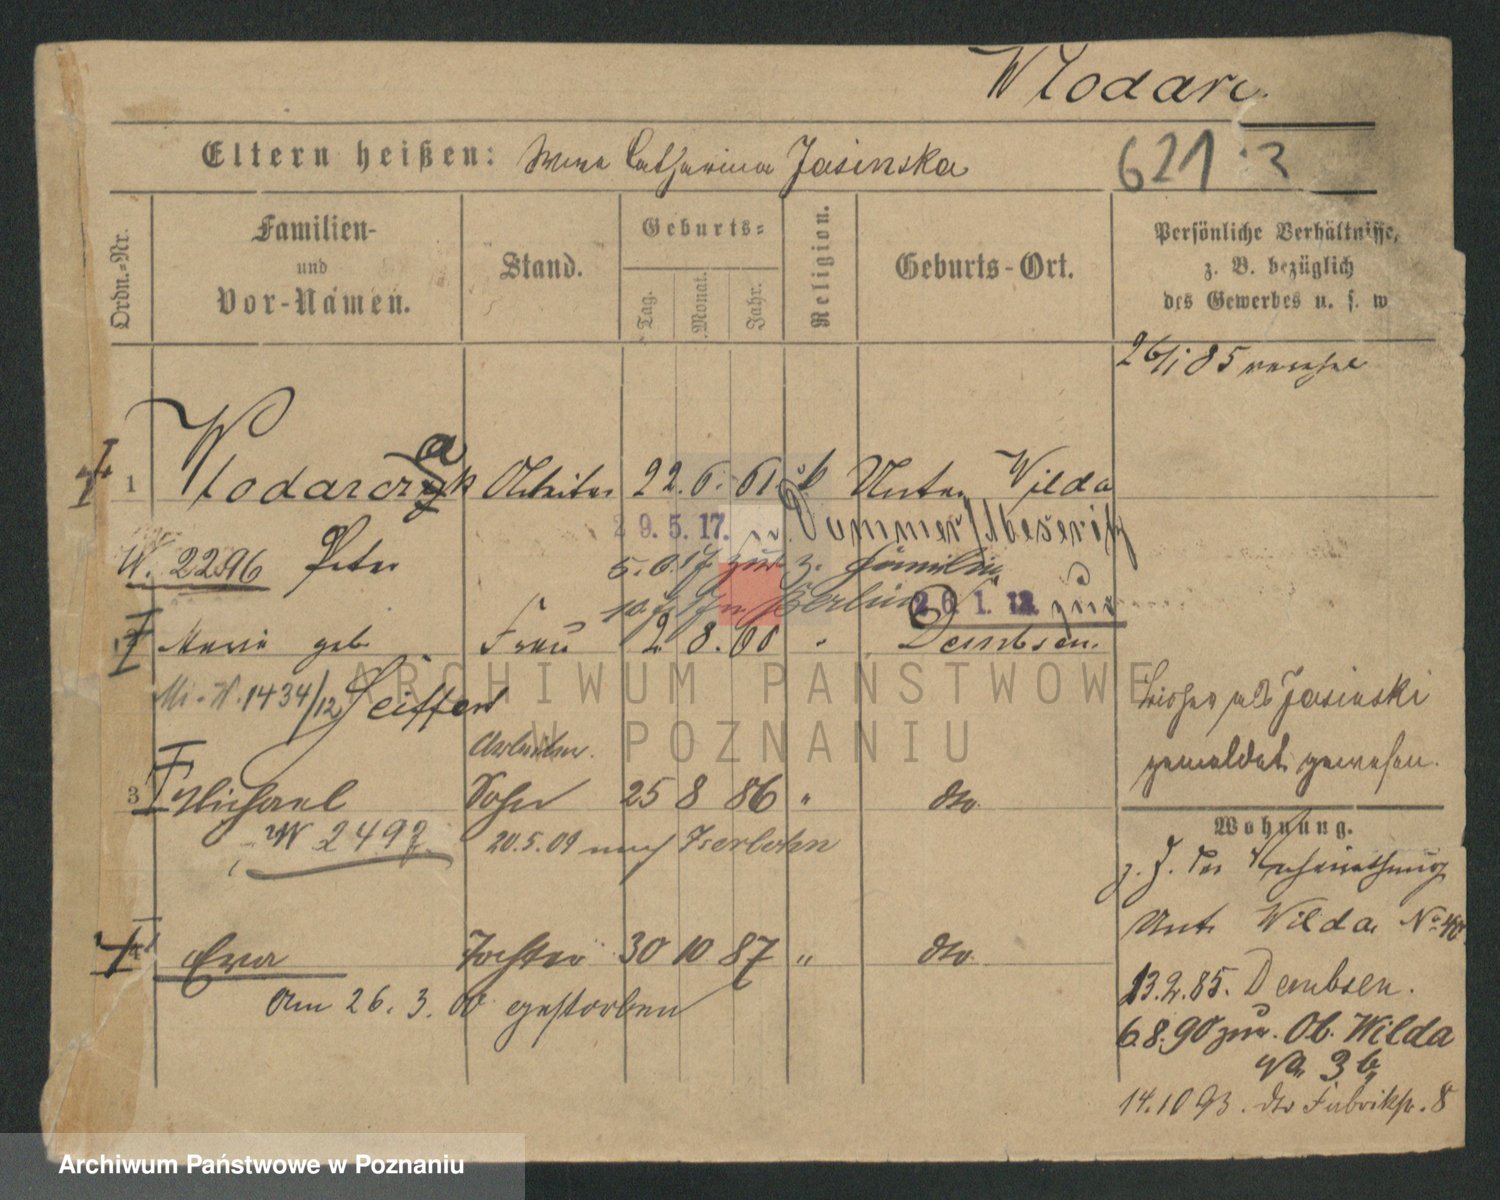 Wlodarc
Eltern heißen: Catharina Jasinska
621
Ordn.-Nr.
Familien-
und
Vor-Namen.
Stand.
Geburts-
Tag.
Monat.
Jahr.
Religion.
Geburts-Ort.
Persönliche Verhältnisse,
z. B. bezüglich
des Gewerbes u. s. w
26/1 85
1 Wlodarczak Arbeiter 22. 6. 61. k Unter Wilda
29.5.17. Dammer/Meseritz
W. 2296 Peter
5.6.17 zur z. Familie
Berlin 26.1.12. zur
Marie geb. Frau 2. 8. 60 Dembsen.
Mi-W. 1434/12 Seiffert
ARCHIWUM PAŃSTWOWE
W POZNANIU
bisher als Jasinski
gemeldet gewesen.
Arbeiter.
3 Michael Sohn 25 8 86 " dto.
W 2497
20.5.09 nach Iserlohn
Wohnung.
z. Z. der
Unt. Wilda No. 40
4 Eva Tochter 30 10 87 " dto.
am 26. 3. 00 gestorben
13.2.85. Dembsen.
6.8.90 zur. Ob. Wilda
3 b
14.10 93. dto Fabrikstr. 8
Archiwum Państwowe w Poznaniu